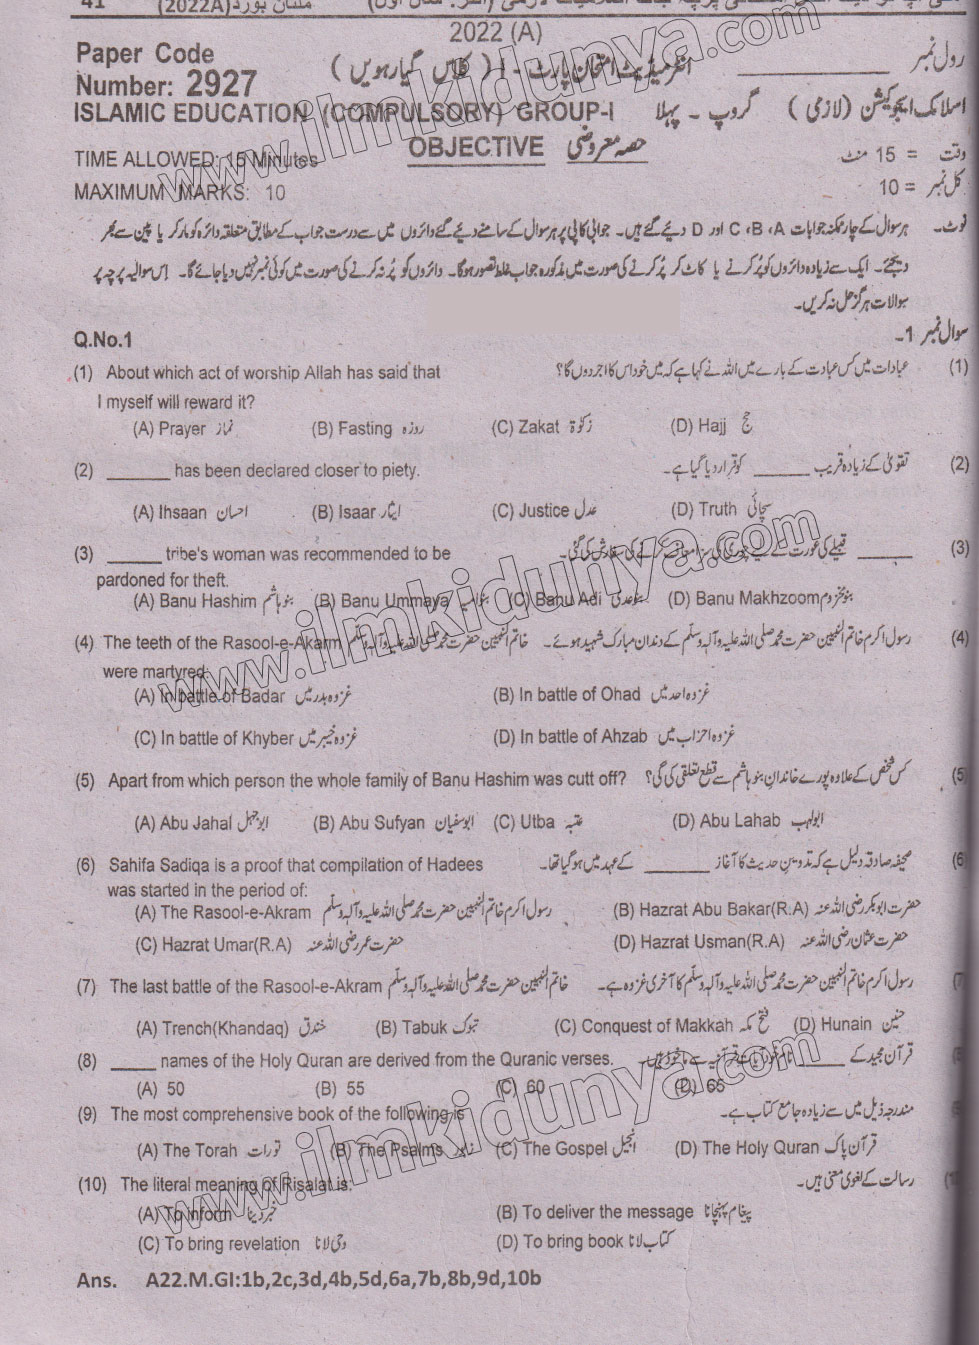 41 ملتان بورڈ(2022A)
2022 (A)
Paper Code
Number: 2927
رول نمبر ________
انٹرمیڈیٹ امتحان پارٹ - I ( کلاس گیارہویں )
ISLAMIC EDUCATION (COMPULSORY) GROUP-I
اسلامک ایجوکیشن (لازمی) گروپ - پہلا
OBJECTIVE حصہ معروضی
TIME ALLOWED: 15 Minutes
وقت = 15 منٹ
MAXIMUM MARKS: 10
کل نمبر = 10
نوٹ۔ ہر سوال کے چار ممکنہ جوابات A، B، C اور D دیئے گئے ہیں۔ جوابی کاپی پر ہر سوال کے سامنے دیئے گئے دائروں میں سے درست جواب کے مطابق متعلقہ دائرہ کو مارکر یا پین سے بھر
دیجئے۔ ایک سے زیادہ دائروں کو پُر کرنے یا کاٹ کر پُر کرنے کی صورت میں مذکورہ جواب غلط تصور ہوگا۔ دائروں کو پُر نہ کرنے کی صورت میں کوئی نمبر نہیں دیا جائے گا۔ اِس سوالیہ پرچہ پر
سوالات ہرگز حل نہ کریں۔
Q.No.1 سوال نمبر 1۔
(1) About which act of worship Allah has said that عبادات میں کس عبادت کے بارے میں اللہ نے کہا ہے کہ میں خود اس کا اجر دوں گا؟ (1)
I myself will reward it?
(A) Prayer نماز (B) Fasting روزہ (C) Zakat زکوٰۃ (D) Hajj حج
(2) ______ has been declared closer to piety. تقویٰ کے زیادہ قریب ______ کو قرار دیا گیا ہے۔ (2)
(A) Ihsaan احسان (B) Isaar ایثار (C) Justice عدل (D) Truth سچائی
(3) ______ tribe's woman was recommended to be ______ قبیلے کی عورت کے لیے چوری کی سزا معاف کرنے کی سفارش کی گئی۔ (3)
pardoned for theft.
(A) Banu Hashim بنو ہاشم (B) Banu Ummaya بنو امیہ (C) Banu Adi بنو عدی (D) Banu Makhzoom بنو مخزوم
(4) The teeth of the Rasool-e-Akarm خاتم النبیین حضرت محمد صلی اللہ علیہ وآلہ وسلم رسول اکرم خاتم النبیین حضرت محمد صلی اللہ علیہ وآلہ وسلم کے دندان مبارک شہید ہوئے۔ (4)
were martyred:
(A) In battle of Badar غزوہ بدر میں (B) In battle of Ohad غزوہ احد میں
(C) In battle of Khyber غزوہ خیبر میں (D) In battle of Ahzab غزوہ احزاب میں
(5) Apart from which person the whole family of Banu Hashim was cutt off? کس شخص کے علاوہ پورے خاندان بنو ہاشم سے قطع تعلقی کی گئی؟ (5)
(A) Abu Jahal ابوجہل (B) Abu Sufyan ابوسفیان (C) Utba عتبہ (D) Abu Lahab ابولہب
(6) Sahifa Sadiqa is a proof that compilation of Hadees صحیفہ صادقہ دلیل ہے کہ تدوین حدیث کا آغاز ______ کے عہد میں ہوگیا تھا۔ (6)
was started in the period of:
(A) The Rasool-e-Akram رسول اکرم خاتم النبیین حضرت محمد صلی اللہ علیہ وآلہ وسلم (B) Hazrat Abu Bakar(R.A) حضرت ابوبکر رضی اللہ عنہ
(C) Hazrat Umar(R.A) حضرت عمر رضی اللہ عنہ (D) Hazrat Usman(R.A) حضرت عثمان رضی اللہ عنہ
(7) The last battle of the Rasool-e-Akram خاتم النبیین حضرت محمد صلی اللہ علیہ وآلہ وسلم رسول اکرم خاتم النبیین حضرت محمد صلی اللہ علیہ وآلہ وسلم کا آخری غزوہ ہے۔ (7)
(A) Trench(Khandaq) خندق (B) Tabuk تبوک (C) Conquest of Makkah فتح مکہ (D) Hunain حنین
(8) _____ names of the Holy Quran are derived from the Quranic verses. قرآن مجید کے _____ نام خود آیات قرآنیہ سے ماخوذ ہیں۔
(A) 50 (B) 55 (C) 60 (D) 66
(9) The most comprehensive book of the following is مندرجہ ذیل میں سے زیادہ جامع کتاب ہے۔
(A) The Torah تورات (B) The Psalms زبور (C) The Gospel انجیل (D) The Holy Quran قرآن پاک
(10) The literal meaning of Risalat is: رسالت کے لغوی معنی ہیں۔
(A) To inform خبر دینا (B) To deliver the message پیغام پہنچانا
(C) To bring revelation وحی لانا (D) To bring book کتاب لانا
Ans. A22.M.GI:1b,2c,3d,4b,5d,6a,7b,8b,9d,10b
www.ilmkidunya.com
www.ilmkidunya.com
www.ilmkidunya.com